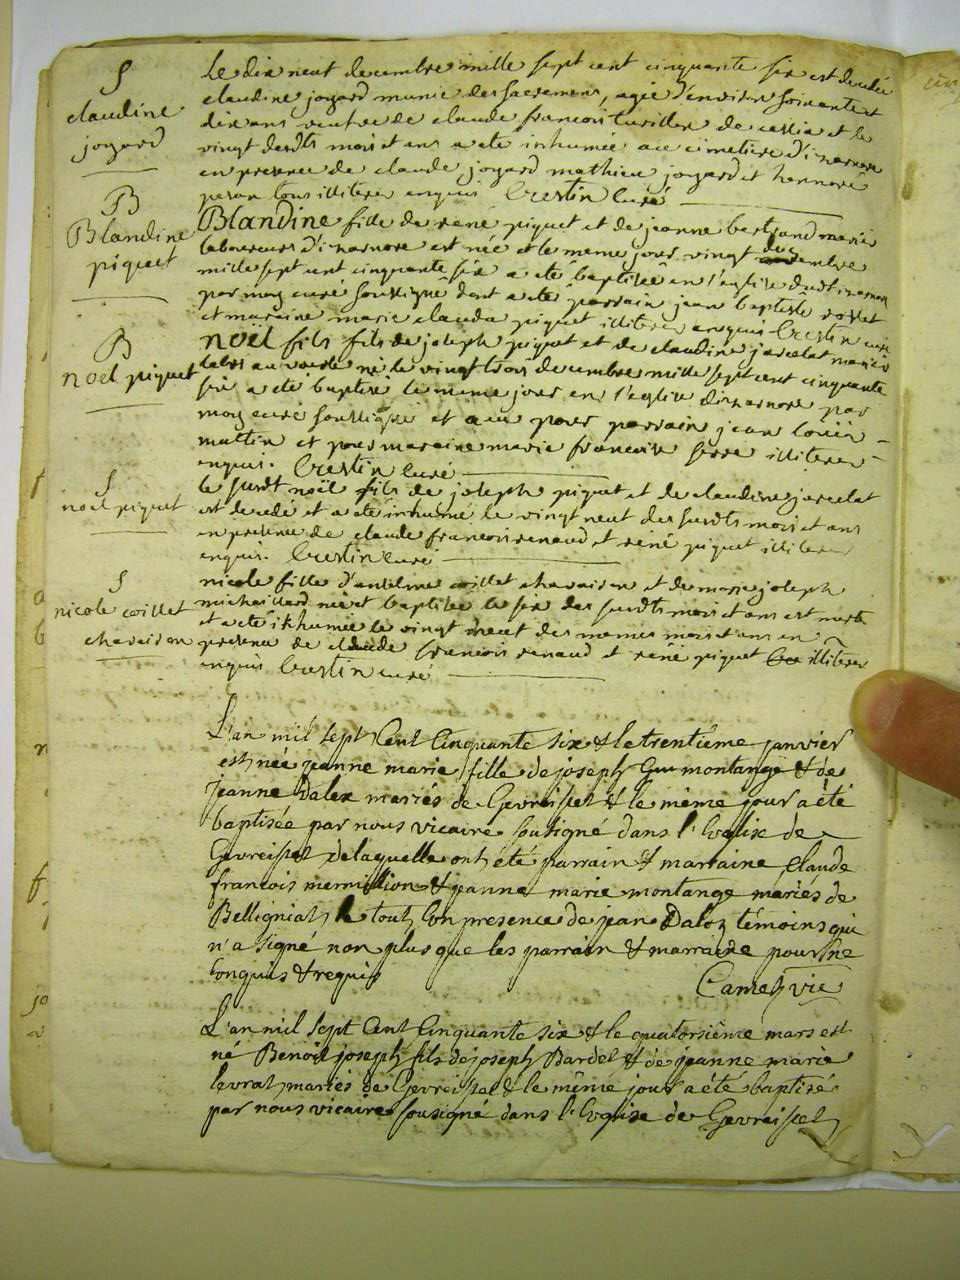 S
claudine
jogard
le dix neuf decembre mille sept cent cinquante six est decedée
claudine jogard munie des sacremens, agée d'environ soixante et
dix ans veufve de claude francois tursiller de cessia et le
vingt desdts mois et ans a ete inhumée au cimetiere d'izarnore
en presence de claude jogard mathieu jogard et honnoré
tous illiteres enquis Crestin Curé
B
Blandine
piquet
Blandine fille de rené piquet et de jeanne bertrand mariés
laboureurs d'izarnore est née et le meme jour vingt decembre
mille sept cent cinquante six a ete baptisée en l'eglise dudt izarnore
par moy curé soussigné dont a ete parrain jean baptiste rosset
et maraine marie clauda piquet illiteres enquis Crestin curé
B
noel piquet
noël fils fils de joseph piquet et de claudine jarcelat mariés
né le vingt trois decembre mille sept cent cinquante
six a ete baptisé le meme jour en l'eglise dizarnore par
moy curé soussigné et a eu pour parrain jean louis
mattin et pour maraine marie francoise serre illiteres
enquis. Crestin Curé
S
noel piquet
le susdt noël fils de joseph piquet et de claudine jarcelat
est decedé et a ete inhumé le vingt neuf des susdts mois et ans
en presence de claude francois renaud et rené piquet illiteres
enquis. Crestin Curé
S
nicole coillet
chavaison
nicole fille d'anselme coillet chavaison et de marie joseph
michaillard née et baptisée le six des susdts mois et ans est morte
et a eté inhumée le vingt neuf des memes mois et ans en
presence de claude francois renaud et rené piquet illiteres
enquis Crestin curé
L'an mil sept Cent Cinquante six & le trentième janvier
est née jeanne marie fille de joseph Gui montange & de
Jeanne Dalex mariés de Gevreisset & le même jour a été
baptisée par nous vicaire sousigné dans l'Eglise de
Gevreisset delaquelle ont été parrain & marraine Claude
francois mermillion & jeanne marie montange mariés de
Bellignat le tout En presence de jean Daloz témoins qui
n'a signé non plus que les parrain & marraine pour ne
Enquis & requis Camet vic
L'an mil sept Cent Cinquante six & le quatorsième mars est
né Benoît joseph fils de joseph Bardet & de jeanne marie
levrat mariés de Gevreisset & le même jour a été baptisé
par nous vicaire sousigné dans l'Eglise de Gevreisset